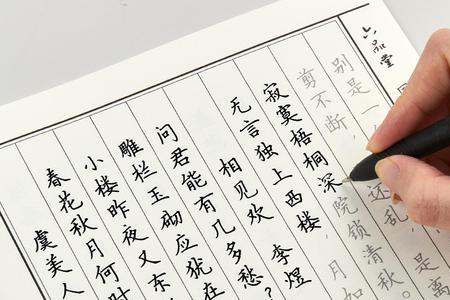 六品堂
虞美人
春花秋月何时
小楼昨夜又东
雕栏玉砌应犹在
问君能有几多愁？
相见欢 李煜
无言独上西楼，月如
寂寞梧桐深院锁清秋。
剪不断，还乱，
别是一